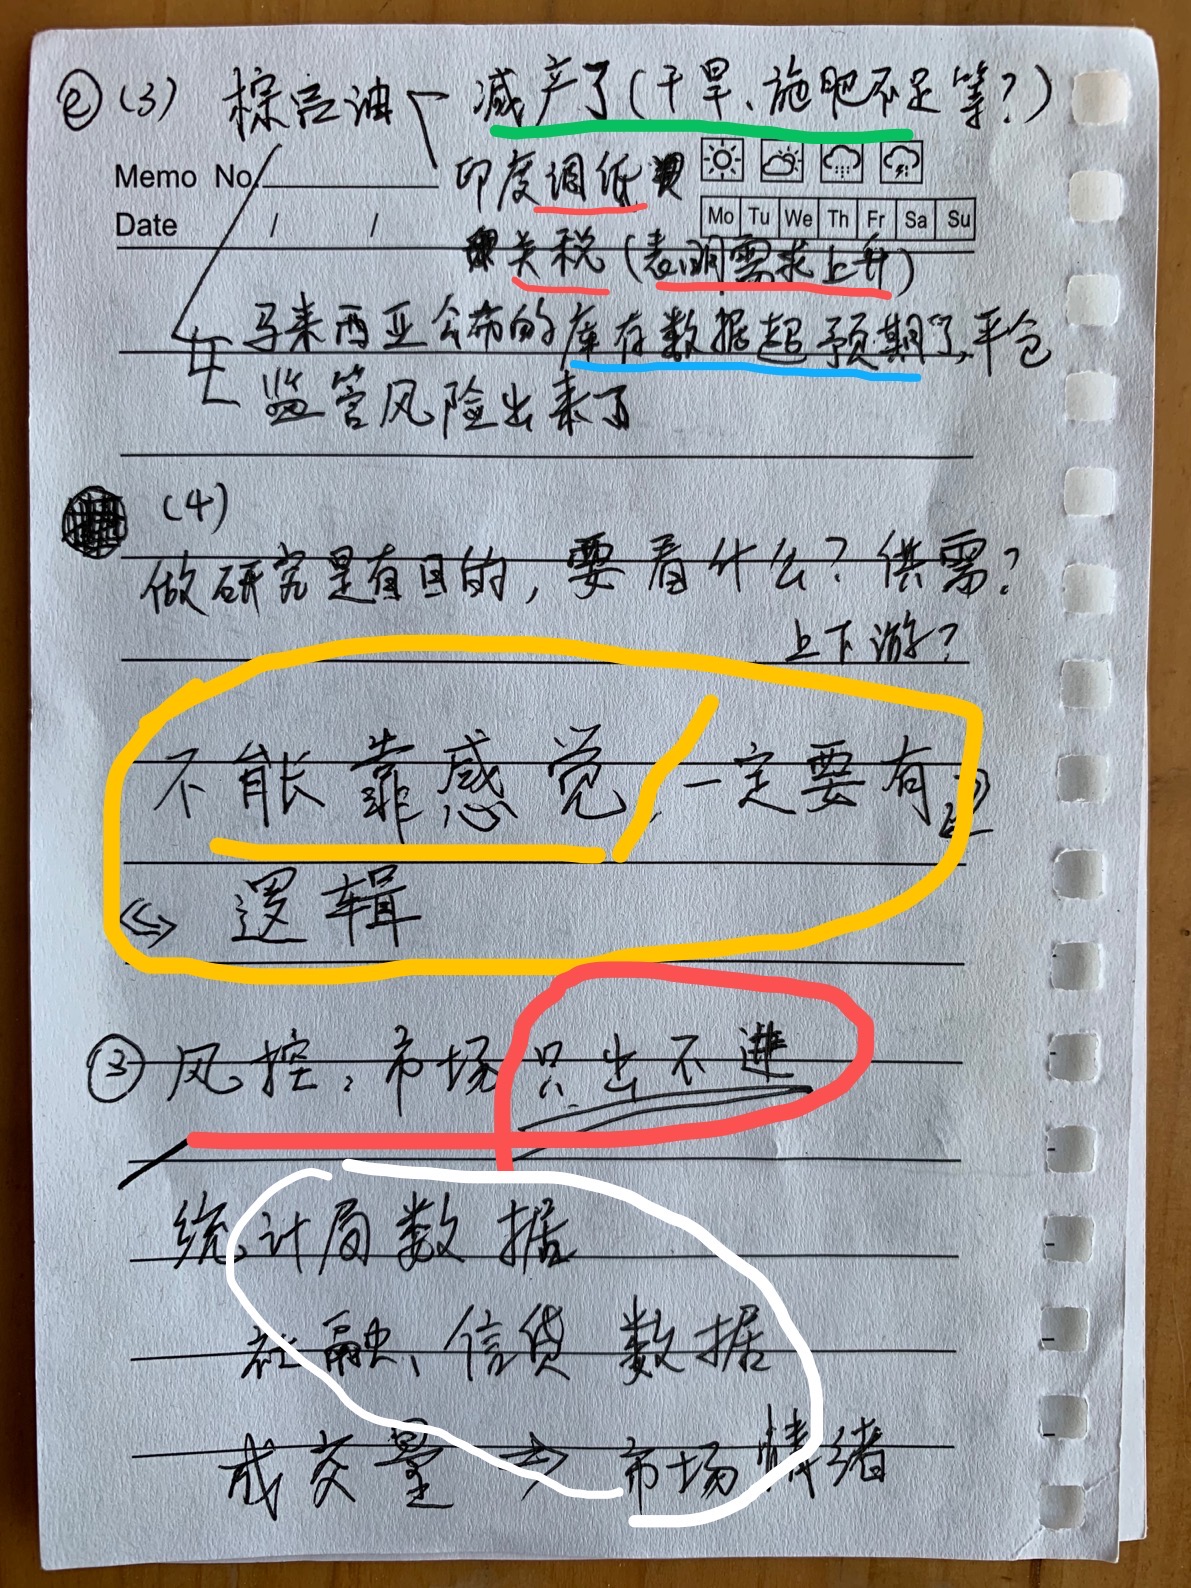 ② (3) 棕榈油 减产了(干旱、施肥不足等?)
Memo No. 印度调低
Mo Tu We Th Fr Sa Su
Date / /
关税(表明需求上升)
马来西亚公布的库存数据超预期了,平仓
监管风险出来了
(4)
做研究是有目的,要看什么?供需?
上下游?
不能靠感觉,一定要有
逻辑
③ 风控:市场只出不进
统计局数据
社融、信贷数据
成交量 → 市场情绪